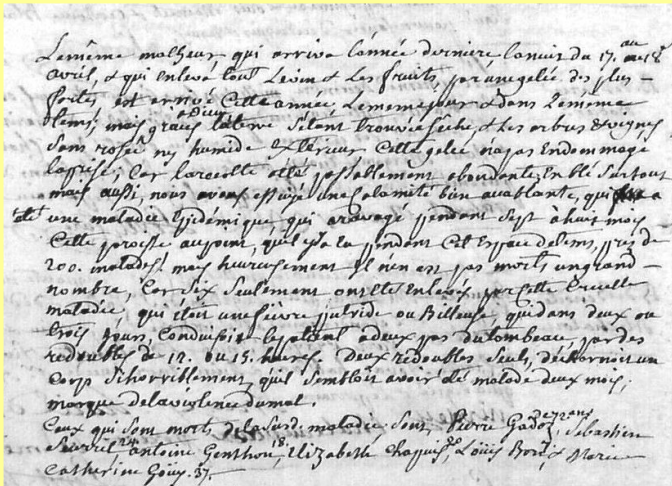 Lememe malheur qui arriva l'année derniere lanuit du 17. au 18e
avril, & qui enleva tout levin & Les fruits, par une gelée des plus
fortes, est arrivé Cette année, Lememe jour & dans Lememe
tems; mais graces a Dieu laterre s'etant trouvée sêche & Les arbres & vignes
Sans rosée ny humide Exterieur Cette gelée na pas Endommagé
la prise; Car larecolte a été passablement abondante En blé Surtout
mais aussi, nous avons essuié une Calamité bien accablante, qui a
été une maladie Epidemique qui aravagé pendent Sept a huit mois
Cette paroisse aupoint, qu'il y a Eu pendent Cet Espace de tems, près de
200. malades! mais heureusement Il n'en est pas morts ungrand
nombre, Car Six Seulement ont été Enlevés par Cette Cruelle
maladie, qui étoit une fievre putride ou Billeuse, qui dans deux ou
trois jours, Conduisoit lepatient a deux pas du tombeau, par des
redoubles de 12. ou 15. heures. Deux redoubles Seuls, decharnoit un
Corp Si horriblement, qu'il Sembloit avoir été malade deux mois,
marque delaviolence dumal.
Ceux qui Sont morts de la Susd. maladie Sont, Pierre Gadoz de 72 ans, Sebastien
24. antoine Genthon, 18. Elizabeth Chapuis, Louïs & Marie
Catherine Goüy. 37.